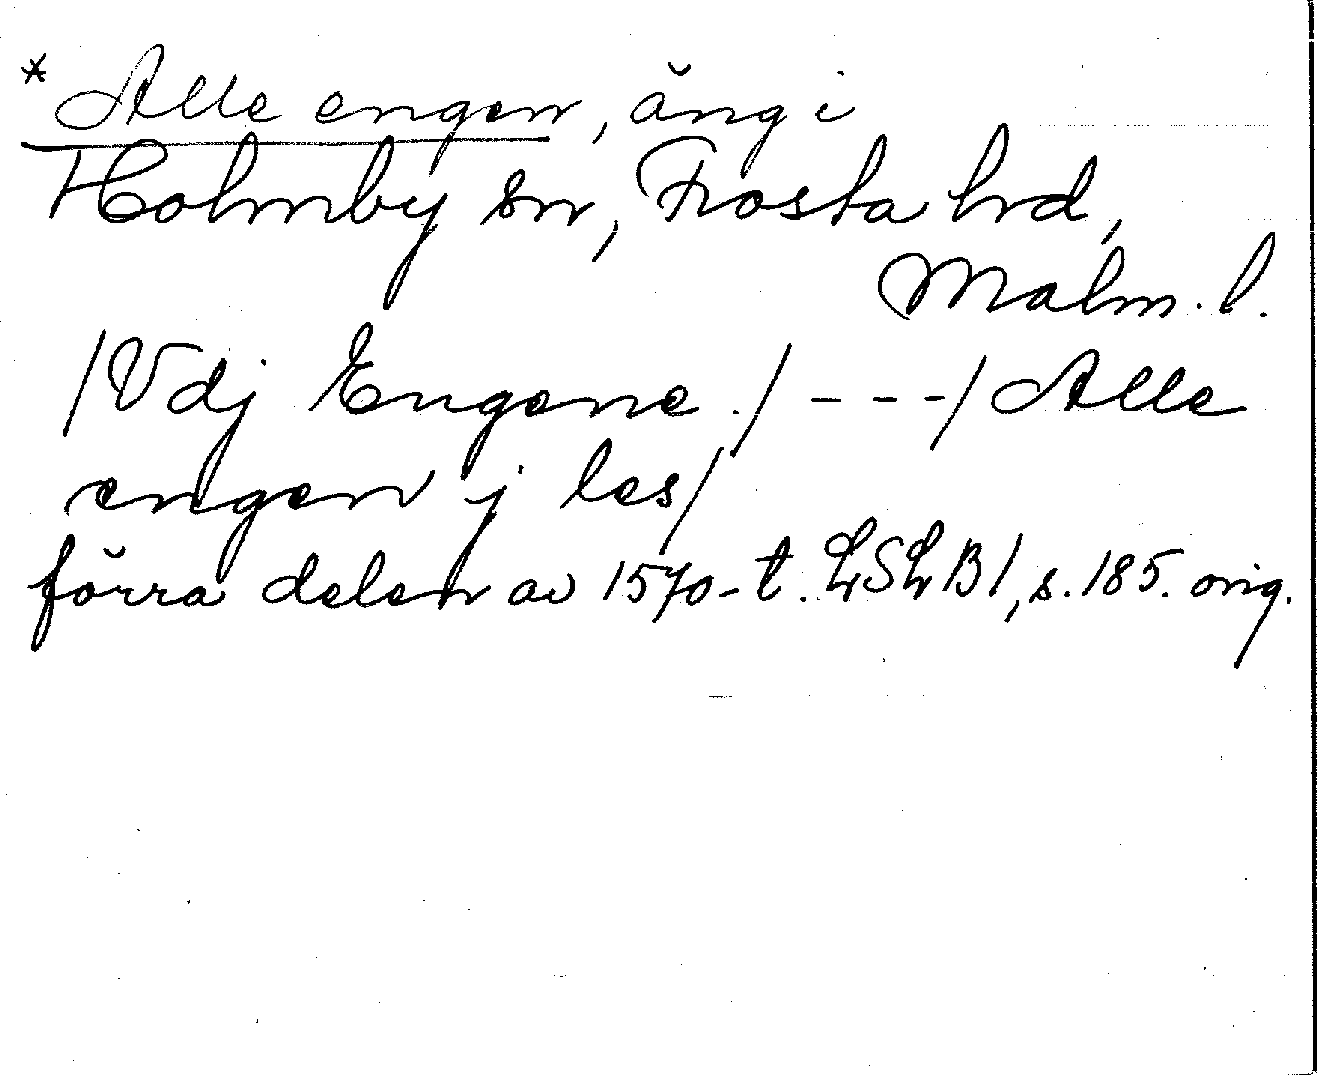 * Alle engen, äng i
Holmby sn, Frosta hrd,
Malm. l.
/Vdj Engene./ - - -/ Alle
engen j les/
förra delen av 1570-t. LSLB1, s. 185. orig.